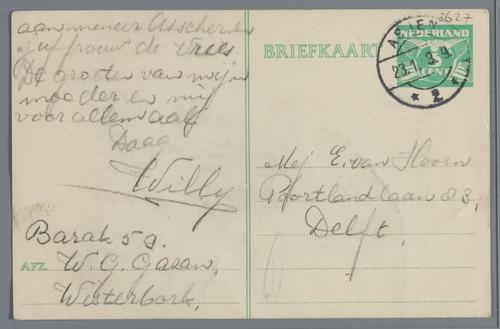 aan meneer Asscher en
juffrouw de Vries
De groeten van mijn
moeder en mij
voor allemaal
Daag
Willy
Barak 59.
AFZ. W. G. Gasan,
Westerbork,
3627
BRIEFKAART
NEDERLAND
5
CENT
ASSEN
23.1
2
Mej E. van Hoorn
Poortlandlaan 83,
Delft,